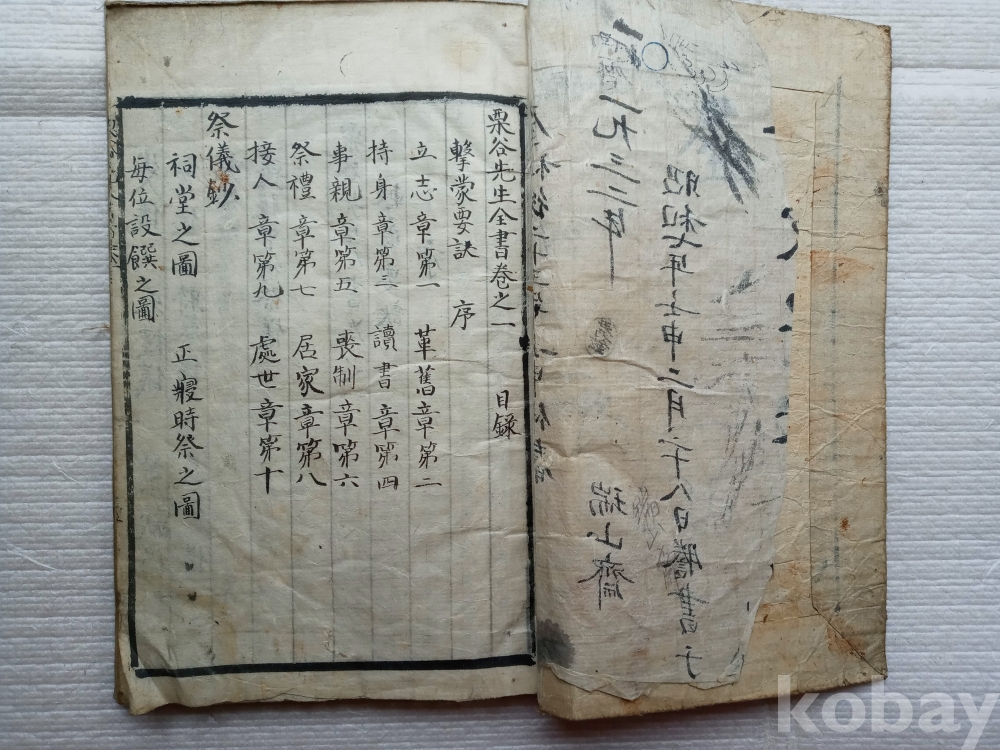 昭和七年壬申二月二十八日謄書于
瑞山齋
一九三二年
栗谷先生全書卷之一 目錄
擊蒙要訣 序
立志章第一 革舊章第二
持身章第三 讀書章第四
事親章第五 喪制章第六
祭禮章第七 居家章第八
接人章第九 處世章第十
祭儀鈔
祠堂之圖 正寢時祭之圖
每位設饌之圖
kobay